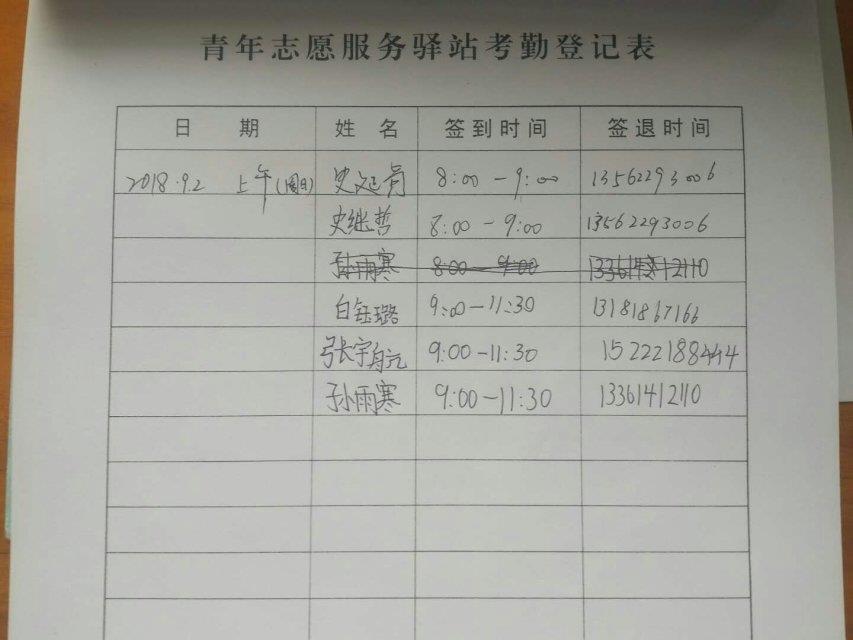 青年志愿服务驿站考勤登记表
日 期 姓 名 签到时间 签退时间
2018.9.2 上午(周日) 史延 8:00-9:00 13562293006
史继哲 8:00-9:00 13562293006
孙雨寒 8:00-9:00 13361412110
白钰璐 9:00-11:30 13181867166
张宇航 9:00-11:30 15222188444
孙雨寒 9:00-11:30 13361412110